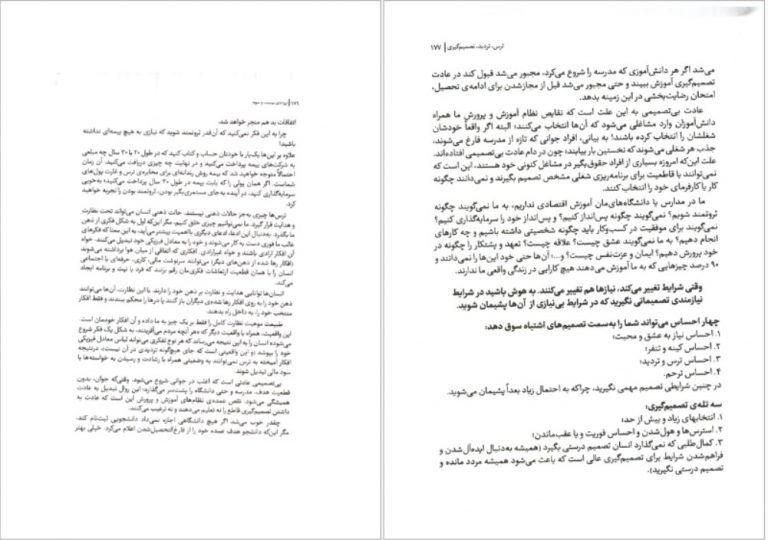 ۱۷۶ |
اتفاقات بد هم منجر خواهد شد.
چرا به این فکر نمی‌کنید که آن‌قدر ثروتمند شوید که نیازی به هیچ بیمه‌ای نداشته
باشید؟
علاوه بر این‌ها یک‌بار با خودتان حساب و کتاب کنید که در طول ۲۰ یا ۳۰ سال چه مبلغی
به شرکت‌های بیمه پرداخت می‌کنید و در نهایت چه چیزی دریافت می‌کنید. آن زمان
احتمالاً متوجه خواهید شد که بیمه روش رندانه‌ای برای مخابره‌ی ترس و غارت پول‌های
شماست. اگر همان پولی را که بابت بیمه در طول ۳۰ سال پرداخت می‌کنید؛ به‌خوبی
سرمایه‌گذاری کنید، در آینده به جای مستمری‌بگیر بودن، ثروتمند بودن را تجربه خواهید
کرد.
ترس‌ها چیزی به‌جز حالات ذهنی نیستند. حالت ذهنی انسان می‌تواند تحت نظارت
و هدایت قرار گیرد. ما نمی‌توانیم چیزی خلق کنیم، مگر این‌که اول به شکل فکری از ذهن
ما بگذرد. به‌دنبال این ادعا، ادعای دیگری با اهمیت بیشتر می‌آید، به این معنا که فکرهای
غالب ما فوری دست به کار می‌شوند و خود را به معادل فیزیکی خود تبدیل می‌کنند. خواه
آن افکار ارادی باشند و خواه غیرارادی. افکاری که اتفاقی از میان هوا برداشته می‌شوند
(افکار رها شده از ذهن‌های دیگر) می‌توانند سرنوشت مالی، کاری، حرفه‌ای یا اجتماعی
انسان را با همان قطعیت ارتعاشات فکری‌مان رقم بزنند که فرد با نیت و برنامه ایجاد
می‌کند.
انسان‌ها توانایی هدایت و نظارت بر ذهن خود را دارند. با این نظارت، آن‌ها می‌توانند
ذهن خود را به روی افکار رها شده‌ی دیگران باز کنند یا درها را محکم ببندند و فقط افکار
منتخب خود را به داخل راه بدهند.
طبیعت موهبت نظارت کامل را فقط بر یک چیز به ما داده و آن افکار خودمان است.
این واقعیت، همراه با واقعیت دیگر که «هر آنچه مردم می‌آفرینند، به شکل یک فکر شروع
می‌شود» انسان را به این نتیجه می‌رساند که هر نوع تفکری می‌تواند لباس معادل فیزیکی
خود را بپوشد (و این واقعیتی است که جای هیچ‌گونه تردیدی در آن نیست)، درنتیجه
افکار آمیخته به ترس نمی‌توانند به وضعیتی همراه با رشادت و رسیدن به خواسته‌ها یا
سود مالی تبدیل شوند.
بی‌تصمیمی عادتی است که اغلب در جوانی شروع می‌شود. وقتی‌که جوان، بدون
قطعیت هدف، مدرسه و حتی دانشگاه را پشت‌سر می‌گذارد؛ این روال تبدیل به عادت
همیشگی می‌شود. نقص عمده‌ی نظام‌های آموزش و پرورش این است که عادت به
داشتن تصمیم‌گیری قاطع را نه تعلیم می‌دهند و نه ترغیب می‌کنند.
چقدر خوب می‌شد اگر هیچ دانشگاهی اجازه نمی‌داد دانشجویی ثبت‌نام کند،
مگر این‌که دانشجو هدف عمده خود را از فارغ‌التحصیل‌شدن اعلام می‌کرد. خیلی بهتر
ترس، تردید، تصمیم‌گیری | ۱۷۷
می‌شد اگر هر دانش‌آموزی که مدرسه را شروع می‌کرد، مجبور می‌شد قبول کند در عادت
تصمیم‌گیری آموزش ببیند و حتی مجبور می‌شد قبل از مجازشدن برای ادامه‌ی تحصیل،
امتحان رضایت‌بخشی در این زمینه بدهد.
عادت بی‌تصمیمی به این علت است که نقایص نظام آموزش و پرورش ما همراه
دانش‌آموزان وارد مشاغلی می‌شود که آن‌ها انتخاب می‌کنند؛ البته اگر واقعاً خودشان
شغلشان را انتخاب کرده باشند! به بیانی، افراد جوانی که تازه از مدرسه فارغ می‌شوند،
جذب هر شغلی می‌شوند که نخستین بار بیابند؛ چون در دام عادت بی‌تصمیمی افتاده‌اند.
علت این‌که امروزه بسیاری از افراد حقوق‌بگیر در مشاغل کنونی خود هستند، این است که
نمی‌توانند با قاطعیت برای برنامه‌ریزی شغلی مشخص تصمیم بگیرند و نمی‌دانند چگونه
کار یا کارفرمای خود را انتخاب کنند.
ما در مدارس یا دانشگاه‌های‌مان آموزش اقتصادی نداریم، به ما نمی‌گویند چگونه
ثروتمند شویم؟ نمی‌گویند چگونه پس‌انداز کنیم؟ و پس‌انداز خود را سرمایه‌گذاری کنیم؟
نمی‌گویند برای موفقیت در کسب‌وکار باید چگونه شخصیتی داشته باشیم و چه کارهای
انجام دهیم؟ به ما نمی‌گویند عشق چیست؟ علاقه چیست؟ تعهد و پشتکار را چگونه در
خود پرورش دهیم؟ ایمان و عزت‌نفس چیست؟ و...؛ آن‌ها حتی خود این‌ها را نمی‌دانند و
۹۰ درصد چیزهایی که به ما آموزش می‌دهند هیچ کارایی در زندگی واقعی ما ندارند.
وقتی شرایط تغییر می‌کند، نیازها هم تغییر می‌کنند. به هوش باشید در شرایط
نیازمندی تصمیماتی نگیرید که در شرایط بی‌نیازی از آن‌ها پشیمان شوید.
چهار احساس می‌تواند شما را به‌سمت تصمیم‌های اشتباه سوق دهد:
۱. احساس نیاز به عشق و محبت؛
۲. احساس کینه و تنفر؛
۳. احساس ترس و تردید؛
۴. احساس ترحم.
در چنین شرایطی تصمیم مهمی نگیرید، چراکه به احتمال زیاد بعداً پشیمان می‌شوید.
سه تله‌ی تصمیم‌گیری:
۱. انتخابهای زیاد و بیش از حد؛
۲. استرس‌ها و هول‌شدن و احساس فوریت و یا عقب‌ماندن؛
۳. کمال‌طلبی که نمی‌گذارد انسان تصمیم درستی بگیرد (همیشه به‌دنبال ایده‌آل‌شدن و
فراهم‌شدن شرایط برای تصمیم‌گیری عالی است که باعث می‌شود همیشه مردد مانده و
تصمیم درستی نگیرید).